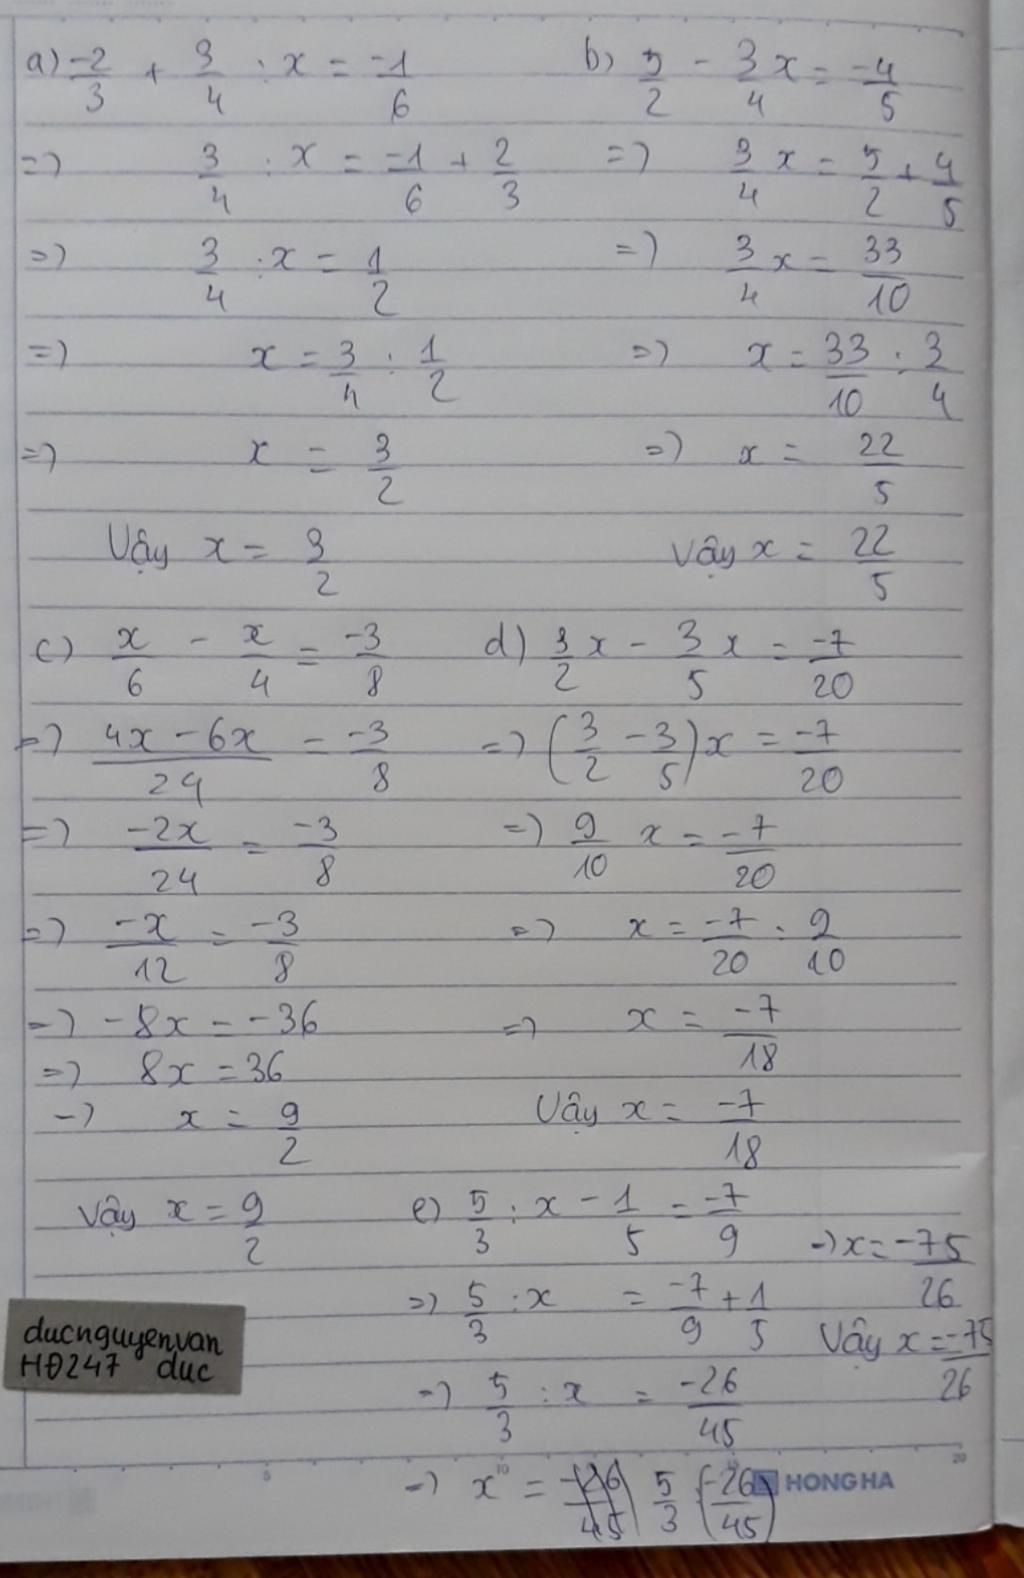 a) -2/3 + 3/4 : x = -1/6
=> 3/4 : x = -1/6 + 2/3
=> 3/4 : x = 1/2
=> x = 3/4 : 1/2
=> x = 3/2
Vậy x = 3/2
b) 5/2 - 3/4 x = -4/5
=> 3/4 x = 5/2 + 4/5
=> 3/4 x = 33/10
=> x = 33/10 : 3/4
=> x = 22/5
Vậy x = 22/5
c) x/6 - x/4 = -3/8
=> 4x - 6x/24 = -3/8
=> -2x/24 = -3/8
=> -x/12 = -3/8
=> -8x = -36
=> 8x = 36
=> x = 9/2
Vậy x = 9/2
d) 3/2 x - 3/5 x = -7/20
=> (3/2 - 3/5) x = -7/20
=> 9/10 x = -7/20
=> x = -7/20 : 9/10
=> x = -7/18
Vậy x = -7/18
e) 5/3 : x - 1/5 = -7/9
=> 5/3 : x = -7/9 + 1/5
=> 5/3 : x = -26/45
=> x = 5/3 : (-26/45)
=> x = -75/26
Vậy x = -75/26
ducnguyenvan
HĐ247 duc
5 10 20
HONG HA